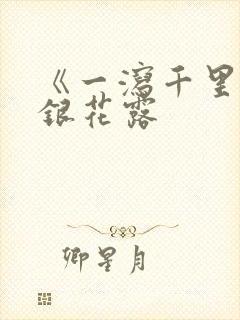 《一瀉千里
銀花露
卿星月